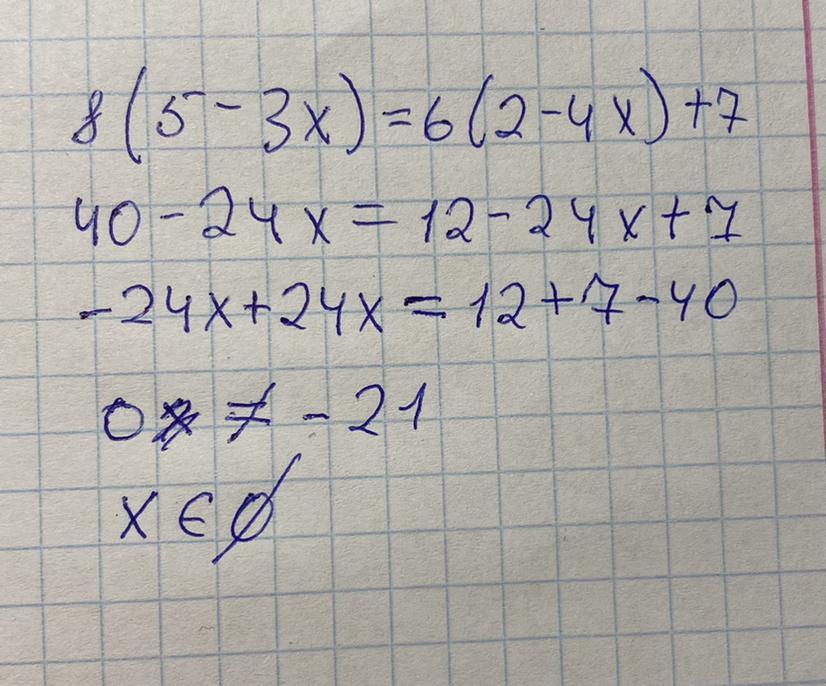 8(5-3x)=6(2-4x)+7
40-24x=12-24x+7
-24x+24x=12+7-40
0≠-21
x∈∅